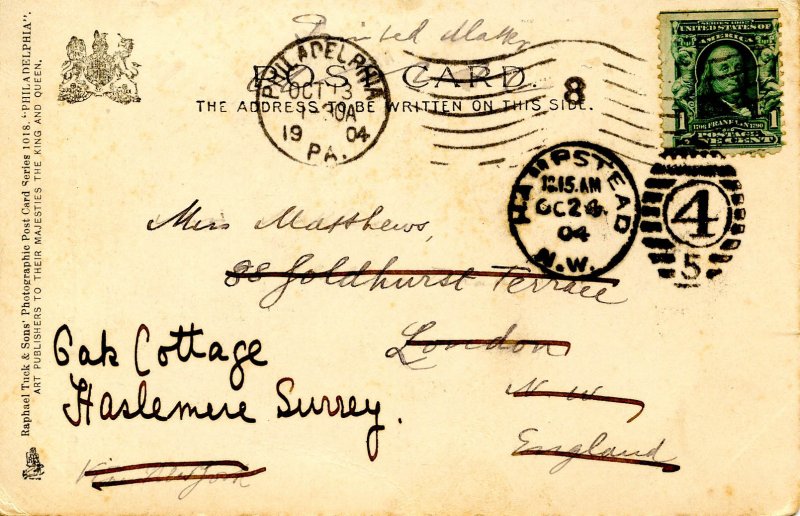 Printed Matter
POST CARD
THE ADDRESS TO BE WRITTEN ON THIS SIDE.
PHILADELPHIA
OCT 13
1-30A
19 04
PA.
8
SERIES 1902
UNITED STATES OF
AMERICA
1706 FRANKLIN 1790
POSTAGE
1 ONE CENT 1
HAMPSTEAD
12.15.AM
OC 24
04
N.W.
4
5
Miss Matthews,
88 Goldhurst Terrace
London
N. W.
England
Oak Cottage
Haslemere Surrey.
Via New York
Raphael Tuck & Sons' Photographic Post Card Series 1018. "PHILADELPHIA".
ART PUBLISHERS TO THEIR MAJESTIES THE KING AND QUEEN.